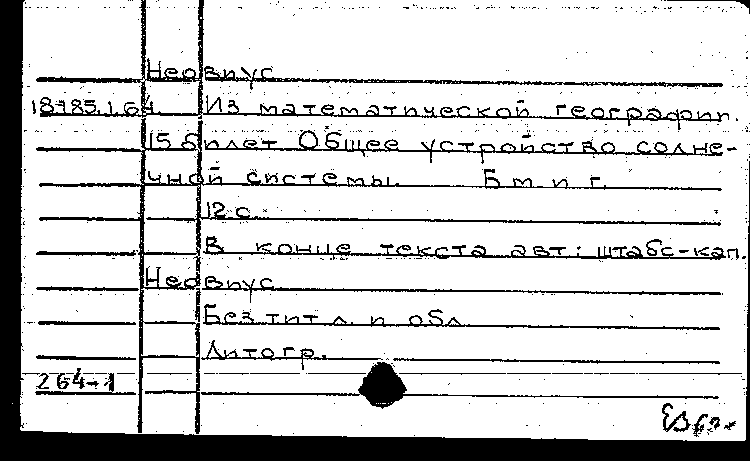 Неовиус
18785.1.64 Из математической географии.
15 билет Общее устройство солне-
чной системы. Б м. и г.
12 с.
В конце текста авт: штабс-кап.
Неовиус
Без тит л. и обл
Литогр.
264-1